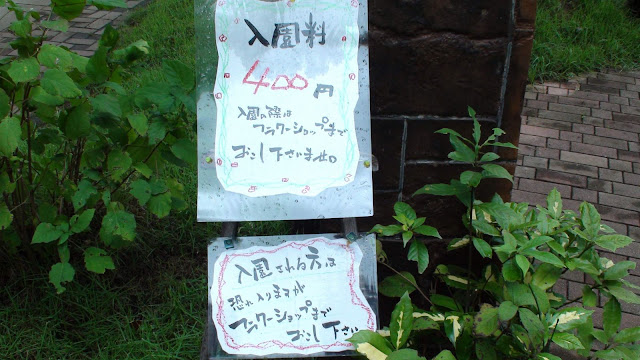 入園料
400円
入園の際は
フラワーショップまで
お越し下さいませ。
入園される方は
恐れ入りますが
フラワーショップまで
お越し下さい